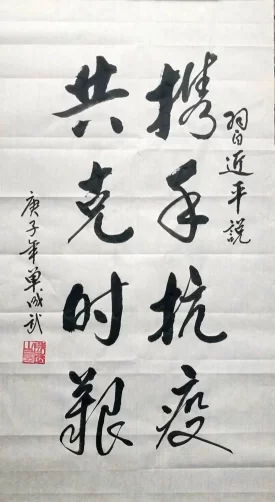 習近平说
携手抗疫
共克时艰
庚子年单成武